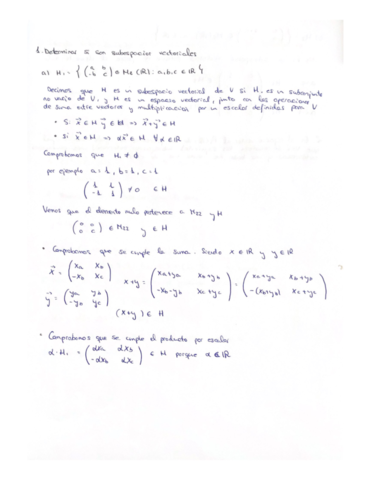 1. Determinar si son subespacios vectoriales
a) H₁ = { ( a b ; -b c ) ∈ M₂ (ℝ) : a,b,c ∈ ℝ }
Decimos que H es un subespacio vectorial de V si H, es un subconjunto
no vacío de V, y H es un espacio vectorial, junto con las operaciones
de suma entre vectores y multiplicación por un escalar definidas para V
• Si x⃗ ∈ H y⃗ ∈ H ⇒ x⃗+y⃗ ∈ H
• Si x⃗ ∈ H ⇒ αx⃗ ∈ H ∀ α ∈ ℝ
Comprobemos que H₁ ≠ ∅
por ejemplo a = 1, b = 1, c = 1
( 1 1 ; -1 1 ) ≠ 0 ∈ H
Vemos que el elemento nulo pertenece a M₂₂ y H
( 0 0 ; 0 0 ) ∈ M₂₂ y ∈ H
• Comprobamos que se cumple la suma. Siendo x ∈ ℝ y y ∈ ℝ
x⃗ = ( xa xb ; -xb xc ) x+y = ( xa+ya xb+yb ; -xb-yb xc+yc ) = ( xa+ya xb+yb ; -(xb+yb) xc+yc )
y⃗ = ( ya yb ; -yb yc )
(x+y) ∈ H
• Comprobamos que se cumple el producto por escalar
α · H₁ = ( αxa αxb ; -αxb αxc ) ∈ H porque α ∈ ℝ